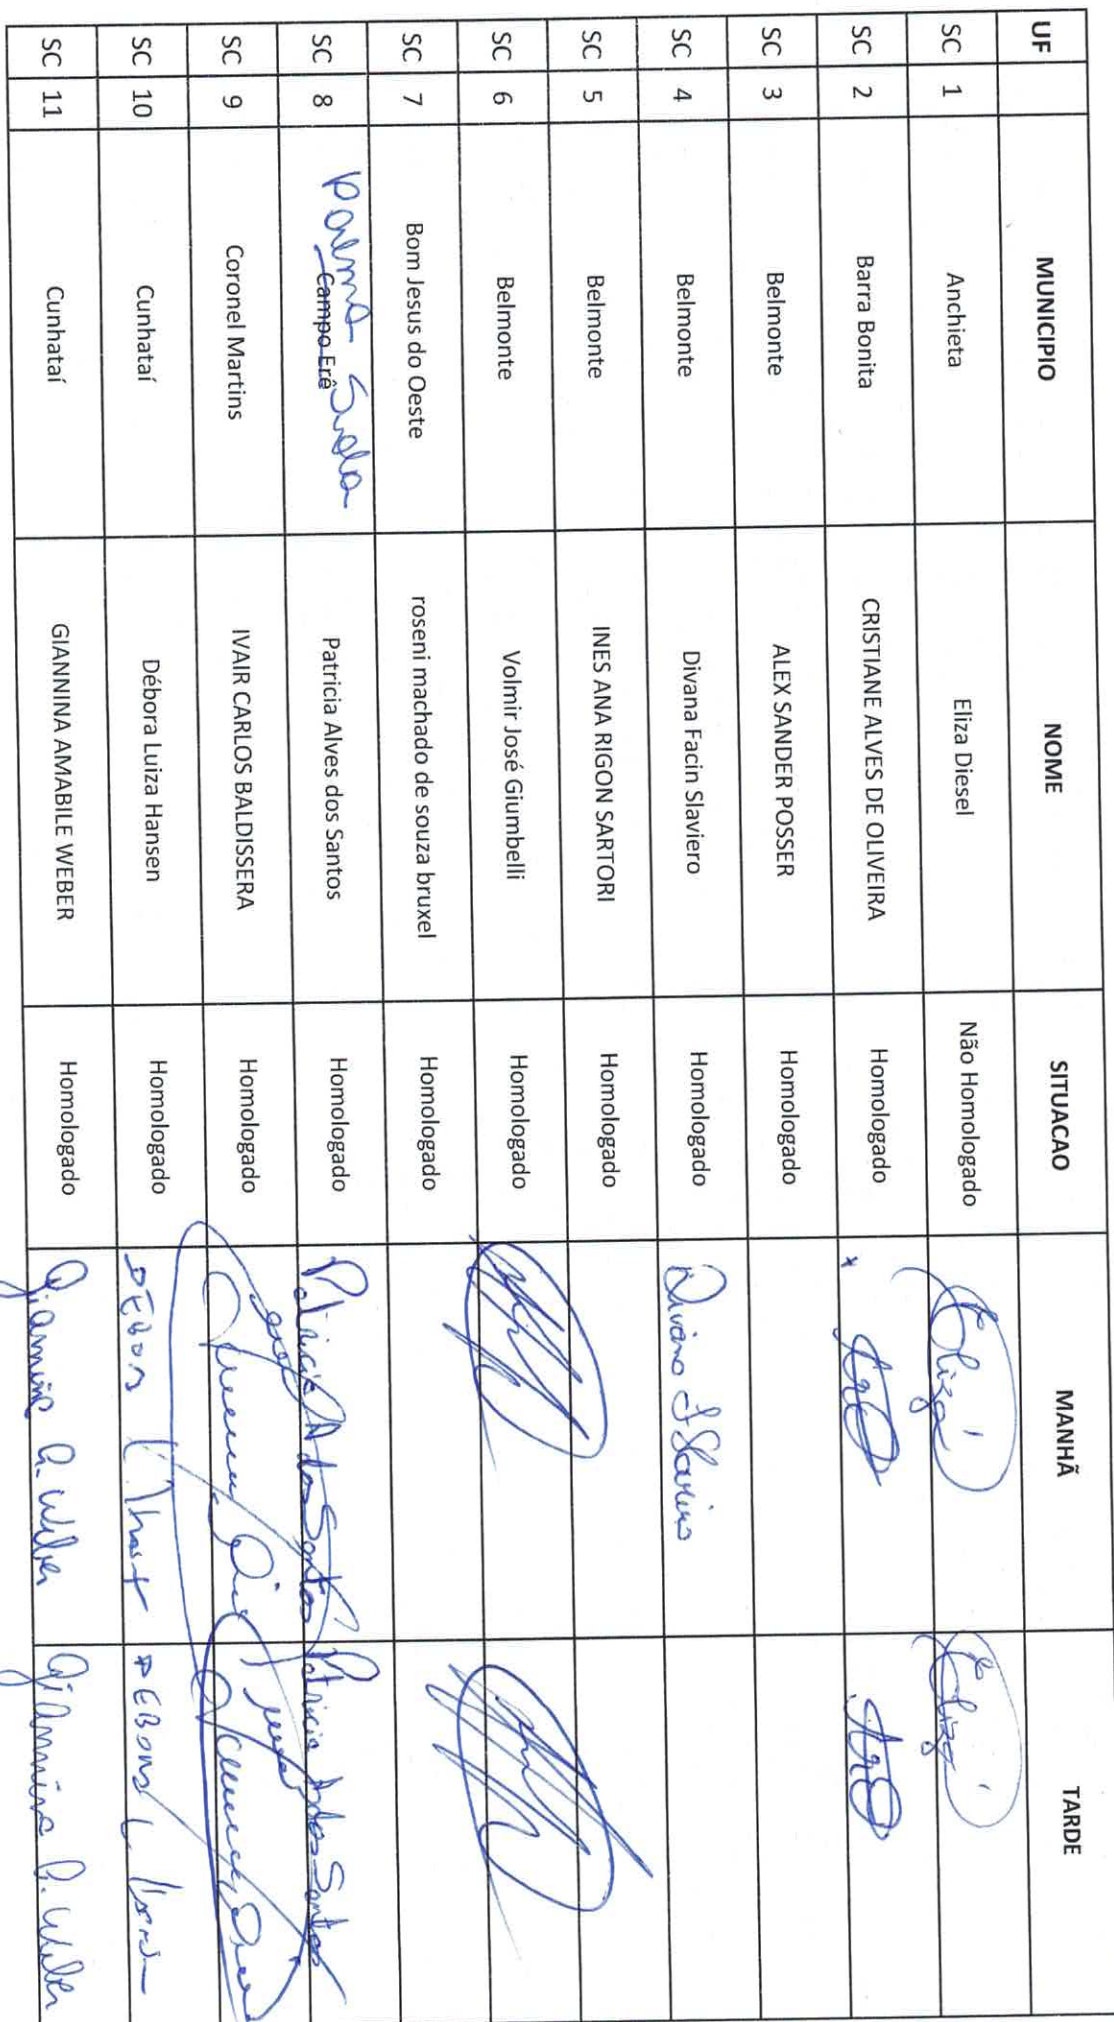 UF MUNICIPIO NOME SITUACAO MANHÃ TARDE
SC 1 Anchieta Eliza Diesel Não Homologado Eliza Eliza
SC 2 Barra Bonita CRISTIANE ALVES DE OLIVEIRA Homologado
SC 3 Belmonte ALEX SANDER POSSER Homologado
SC 4 Belmonte Divana Facin Slaviero Homologado Divana F Slaviero
SC 5 Belmonte INES ANA RIGON SARTORI Homologado
SC 6 Belmonte Volmir José Giumbelli Homologado
SC 7 Bom Jesus do Oeste roseni machado de souza bruxel Homologado
SC 8 Palma Sola Campo Erê Patricia Alves dos Santos Homologado Patricia A dos Santos Patricia A dos Santos
SC 9 Coronel Martins IVAIR CARLOS BALDISSERA Homologado
SC 10 Cunhataí Débora Luiza Hansen Homologado
SC 11 Cunhataí GIANNINA AMABILE WEBER Homologado Giannina A. Weber Giannina A. Weber